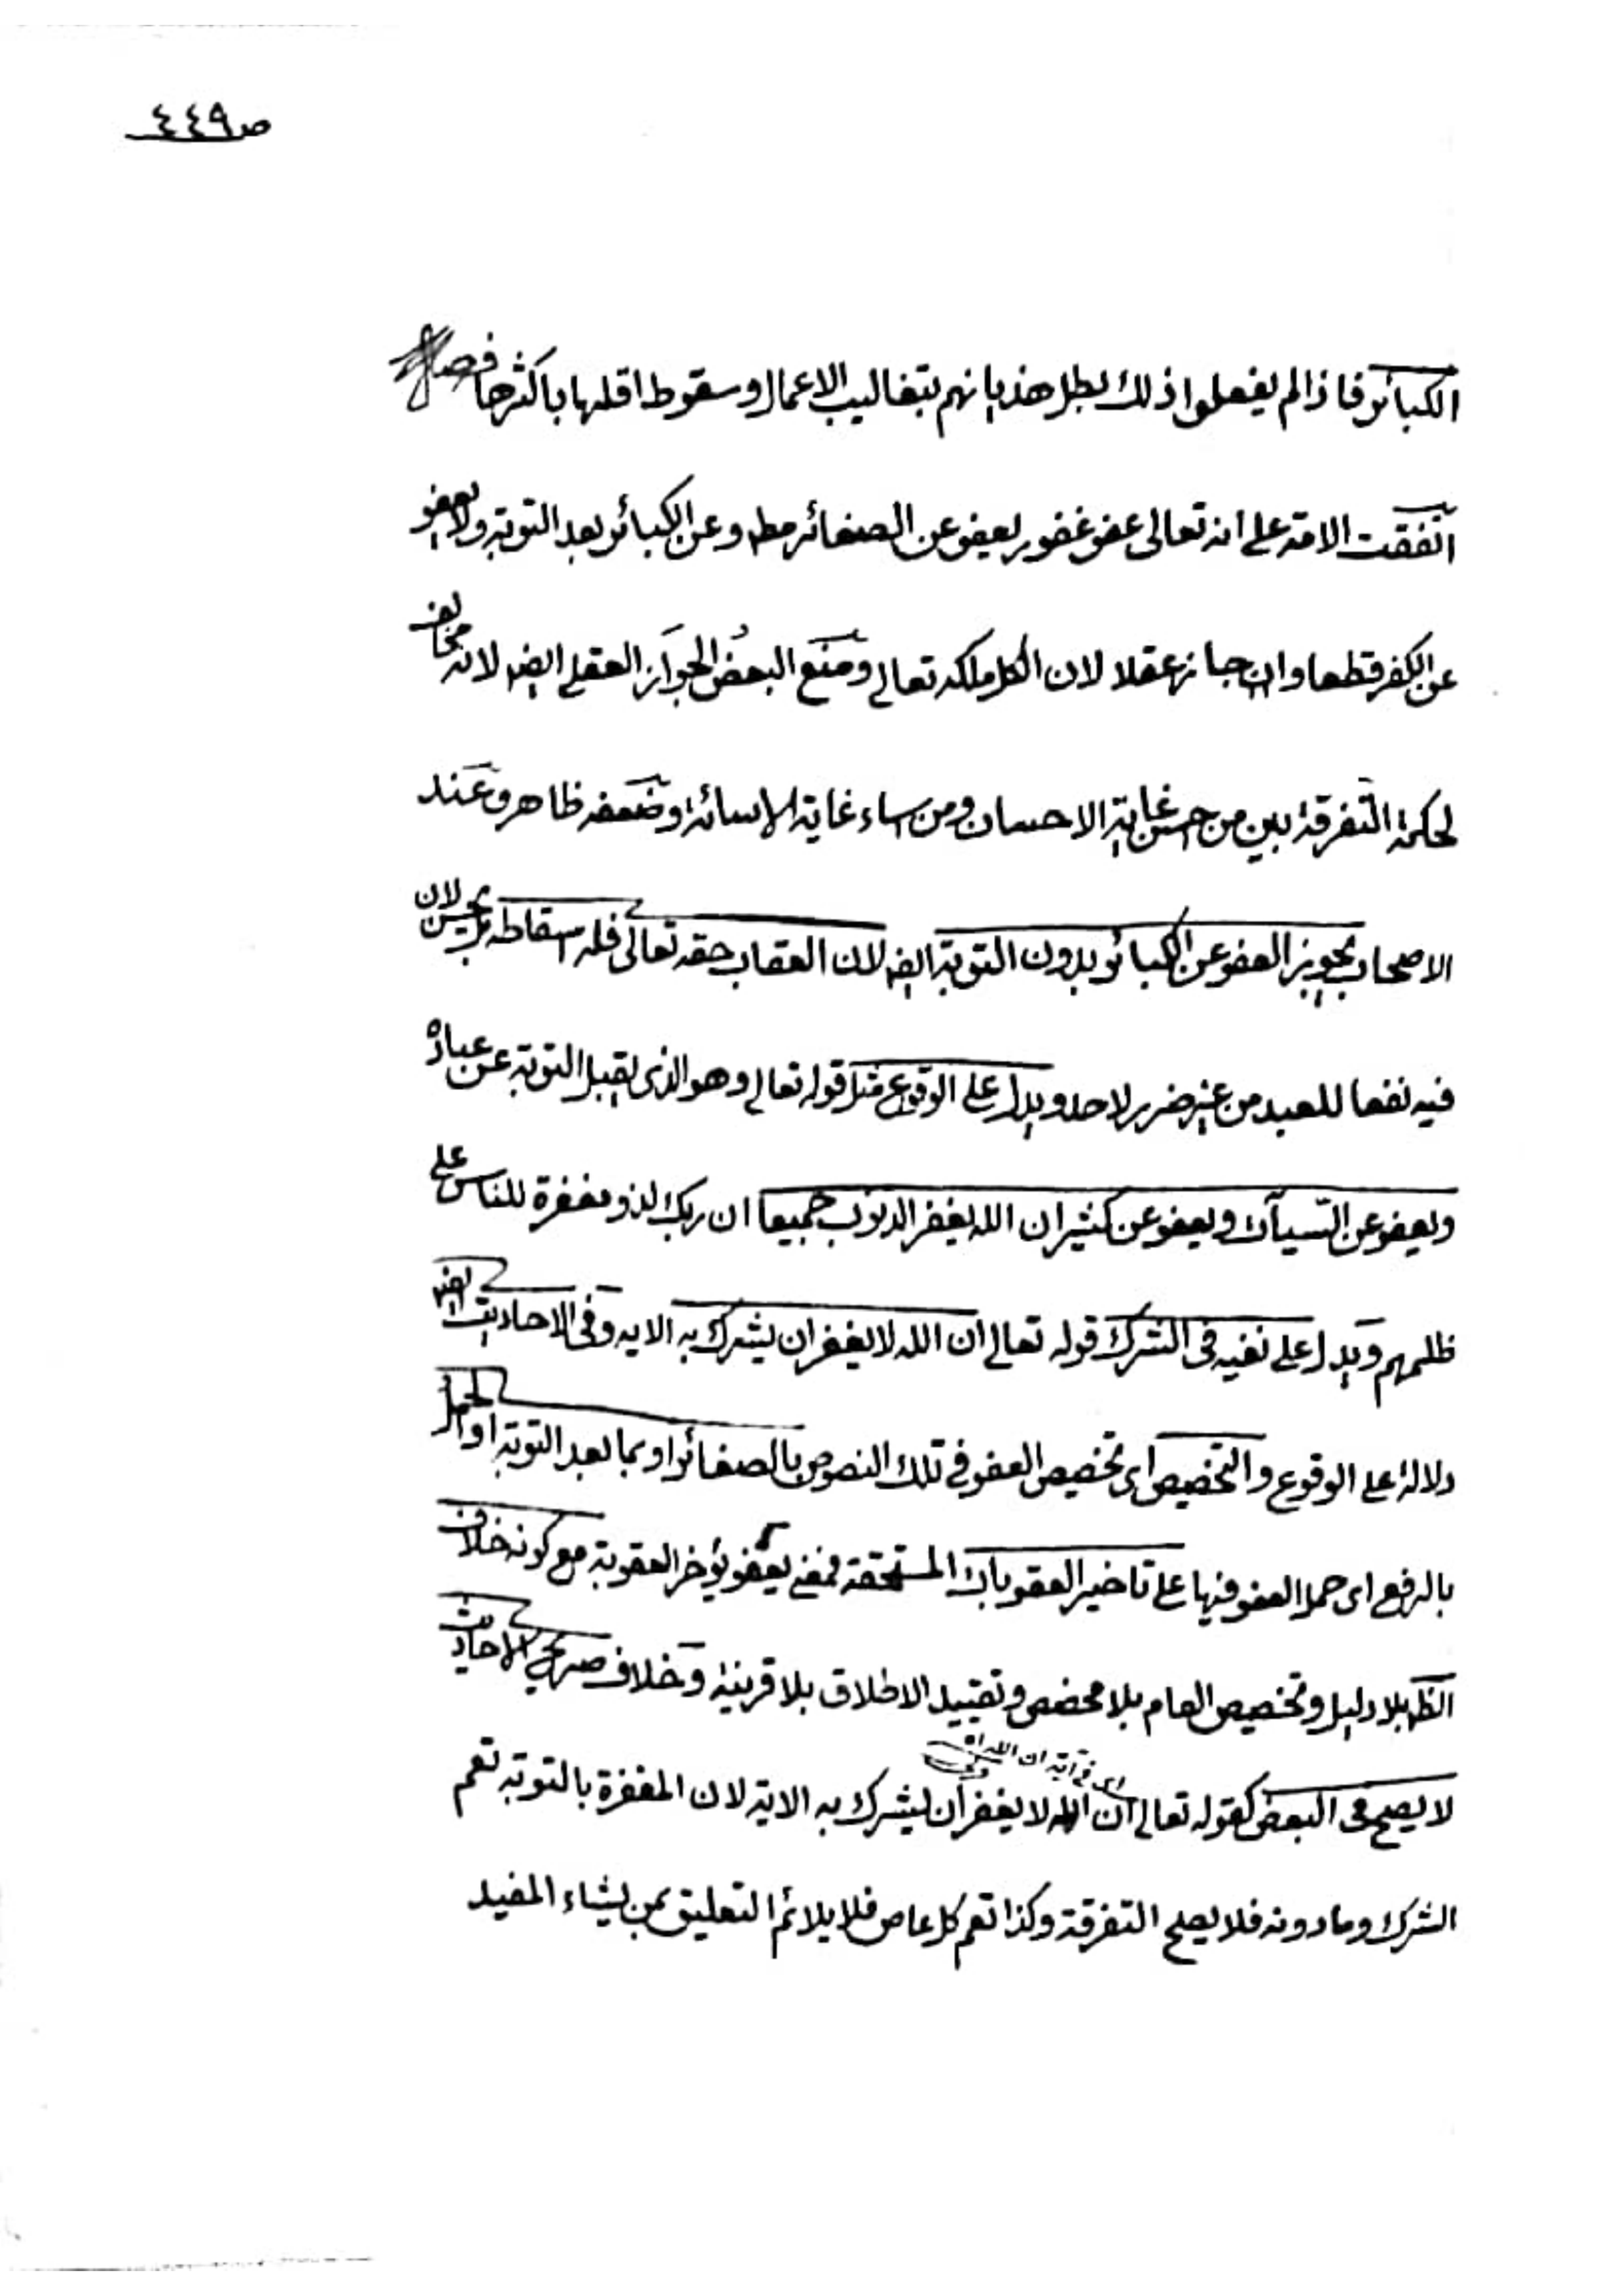 ص٤٤٩
الكبائر فاذا لم يفعلوا ذلك بطل هذيانهم بتغاليب الاعمال وسقوط اقلها باكثرها فصل
اتفقت الامة على انه تعالى عفو غفور يعفو عن الصغائر مط وعن الكبائر بعد التوبة ولا يعفو
عن الكفر قطعا وان جاز عقلا لان الكل ملكه تعالى ومنع البعضُ الجوازَ العقلي ايض لانه مخالف
لحكمة التفرقة بين من احسن غاية الاحسان ومن اساء غاية الاسائة وضعفه ظاهر وعند
الاصحاب يجوز العفو عن الكبائر بدون التوبة ايض لان العقاب حقه تعالى فله اسقاطه بل يحسن لان
فيه نفعا للعبد من غير ضرر لاحد ويدل على الوقوع مثل قوله تعالى وهو الذى يقبل التوبة عن عباده
ويعفو عن السيآت ويعفو عن كثير ان الله يغفر الذنوب جميعا ان ربك لذو مغفرة للناس على
ظلمهم ويدل على نفيه فى الشرك قوله تعالى ان الله لا يغفر ان يشرك به الايه وفى الاحاديث ايض
دلالة على الوقوع والتخصيص اى تخصيص العفو فى تلك النصوص بالصغائر او بما بعد التوبة او الحمل
بالرفع اى حمل العفو فيها على تاخير العقوبات المستحقة فمعنى يعفو يؤخر العقوبة مع كونه خلاف
الظ بلا دليل وتخصيص العام بلا مخصص وتقييد الاطلاق بلا قرينة وخلاف صريح الاحاديث
اى فى آية ان الله
لا يصح فى البعض كقوله تعالى ان الله لا يغفر ان يشرك به الاية لان المغفرة بالتوبة تعم
الشرك وما دونه فلا يصح التفرقة وكذا تعم كل عاص فلا يلائم التعليق بمن يشاء المفيد